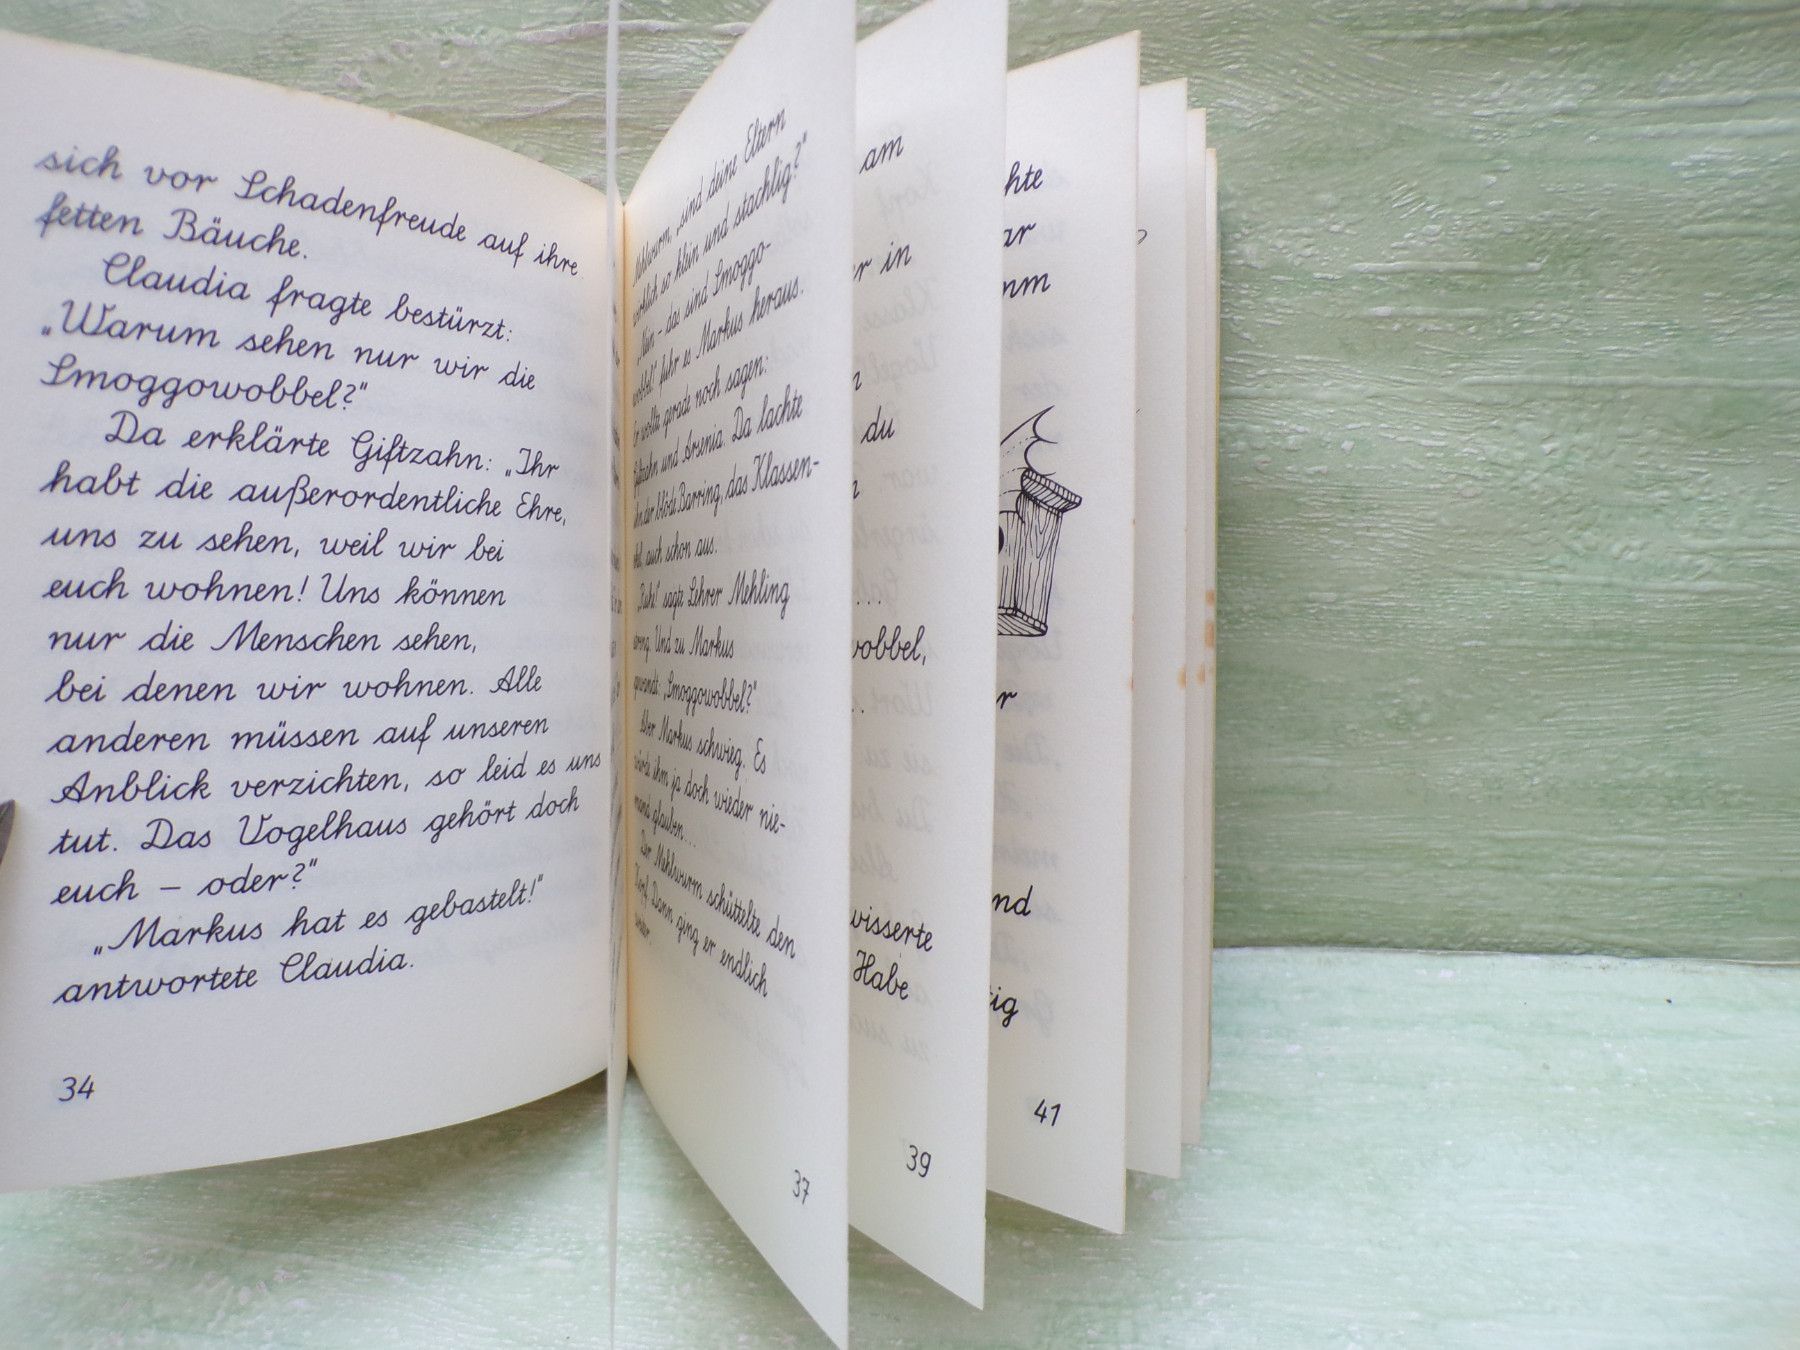 sich vor Schadenfreude auf ihre
fetten Bäuche.
Claudia fragte bestürzt:
„Warum sehen nur wir die
Smoggowobbel?“
Da erklärte Giftzahn: „Ihr
habt die außerordentliche Ehre,
uns zu sehen, weil wir bei
euch wohnen! Uns können
nur die Menschen sehen,
bei denen wir wohnen. Alle
anderen müssen auf unseren
Anblick verzichten, so leid es uns
tut. Das Vogelhaus gehört doch
euch – oder?“
„Markus hat es gebastelt!“
antwortete Claudia.
34
Mehlwurm, „sind deine Eltern
wirklich so klein und stachlig?“
„Nein – das sind Smoggo-
wobbel!“ fuhr es Markus heraus.
Er wollte gerade noch sagen:
Giftzahn und Arsenia. Da lachte
ihn der blöde Barring, das Klassen-
auch schon aus.
„Ruhe!“ sagte Lehrer Mehling
streng. Und zu Markus
gewandt: „Smoggowobbel?“
Aber Markus schwieg. Es
würde ihm ja doch wieder nie-
mand glauben...
Der Mehlwurm schüttelte den
Kopf. Dann ging er endlich
weiter.
37
am
er in
n
du
n
...
wobbel,
..
wisserte
Habe
39
hte
ar
mm
r
nd
tig
41